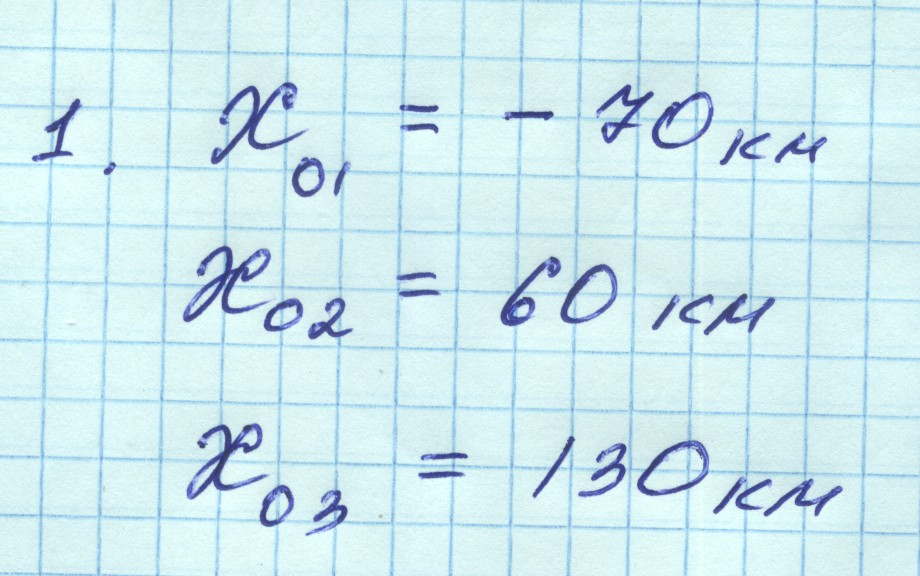 1. x₀₁ = - 70 км
x₀₂ = 60 км
x₀₃ = 130 км